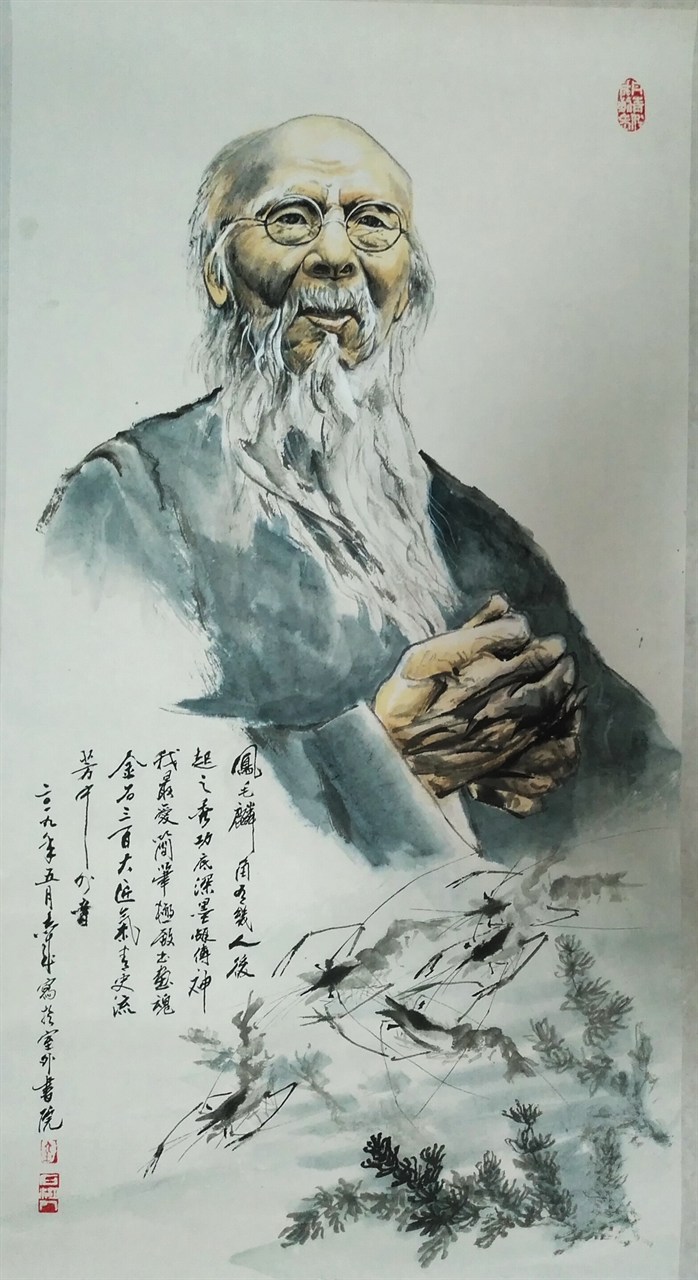 鳳毛麟角有幾人後
起之秀功底深墨蝦傳神
我最愛簡筆極致出畫魂
金石三百大匠氣青史流
芳中外
二〇一九年五月寫於室外書院